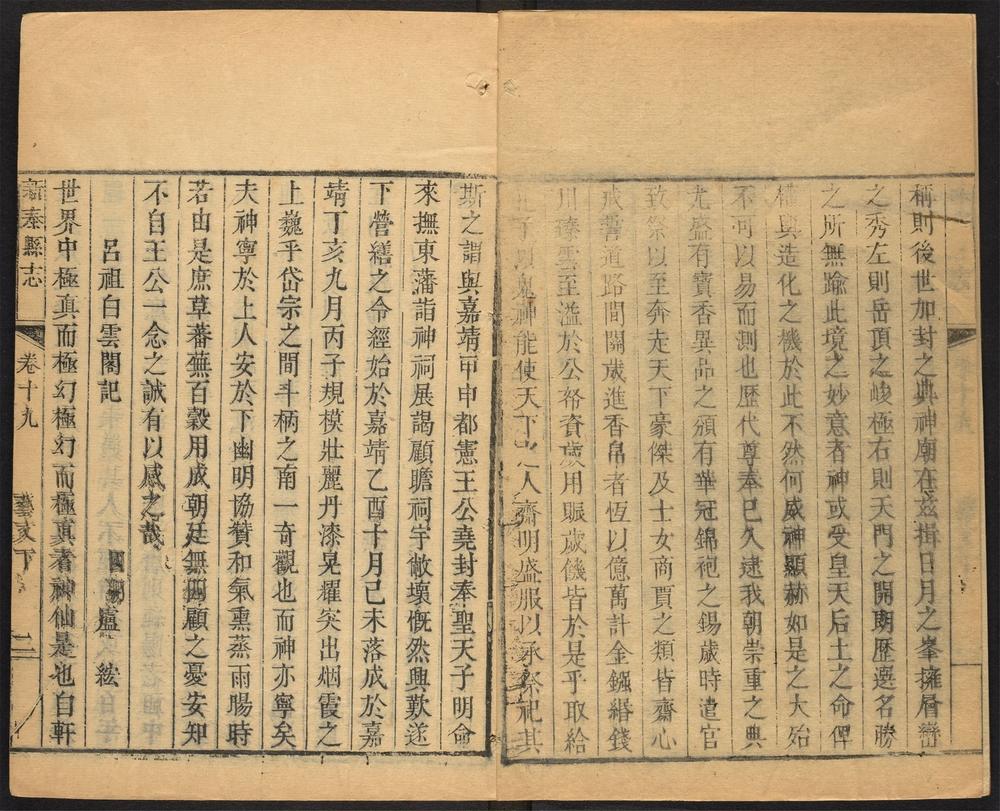 稱則後世加封之典神廟在茲揖日月之峯擁層巒
之秀左則岳頂之峻極右則天門之開期歷選名勝
之所無踰此境之妙意者神或受皇天后土之命俾
權輿造化之機於此不然何威神顯赫如是之大始
不可以易而測也歷代尊奉已久逮我朝崇重之典
尤盛有寶香異品之頒有華冠錦袍之錫歲時遣官
致祭以至奔走天下豪傑及士女商賈之類皆齋心
戒誓道路間關歲進香帛者恆以億萬計金鏹緡錢
川臻雲至溢於公裕資歲用賑歲饑皆於是乎取給
孔子以鬼神能使天下之人齋明盛服以承祭祀其
斯之謂與嘉靖甲申都憲王公堯封奉聖天子明命
來撫東藩詣神祠展謁顧瞻祠宇敝壞慨然興歎遂
下營繕之令經始於嘉靖乙酉十月己未落成於嘉
靖丁亥九月丙子規模壯麗丹漆晃耀突出烟霞之
上巍乎岱宗之間斗柄之南一奇觀也而神亦寧矣
夫神寧於上人安於下幽明協贊和氣熏蒸雨暘時
若由是庶草蕃蕪百穀用成朝廷無四顧之憂安知
不自王公一念之誠有以感之哉
呂祖白雲閣記 盧紘
世界中極眞而極幻極幻而極眞者神仙是也自軒
新泰縣志 卷十九 藝文下 二